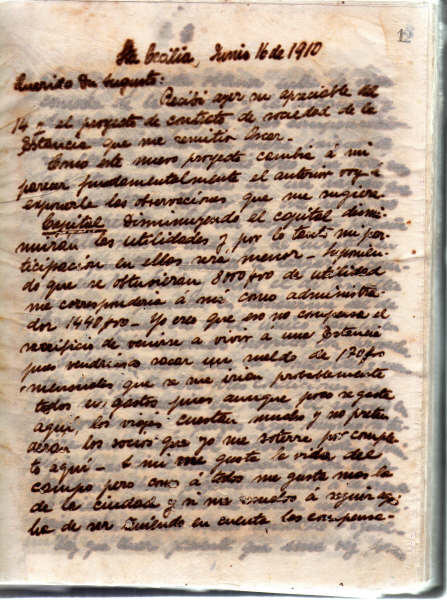 12
Sta Cecilia, Junio 16 de 1910
Querido Dn Augusto:
Recibí ayer su apreciable del
14 - el proyecto de contrato de sociedad de la
Estancia que me remitió Oscar.
Como este nuevo proyecto cambia á mi
parecer fundamentalmente el anterior voy á
exponerle las observaciones que me sugiere
Capital Disminuyendo el capital dismi-
nuirán las utilidades y por lo tanto mi par-
ticipación en ellas será menor - Suponien-
do que se obtuvieran 8000 $oro de utilidad
me correspondería á mí como administra-
dor 1440 $oro - Yo creo que eso no compensa el
sacrificio de venirse a vivir á una Estancia
pues vendría á sacar un sueldo de 120 $oro
mensuales que se me irían probablemente
todos en gastos pues aunque poco se gaste
aquí, los viajes cuestan mucho y no preten
derán los socios que yo me soterre por comple-
to aquí - A mi me gusta la vida del
campo pero como á todos me gusta mas la
de la ciudad y si me á seguir
ha de ser teniendo en cuenta las compensa-